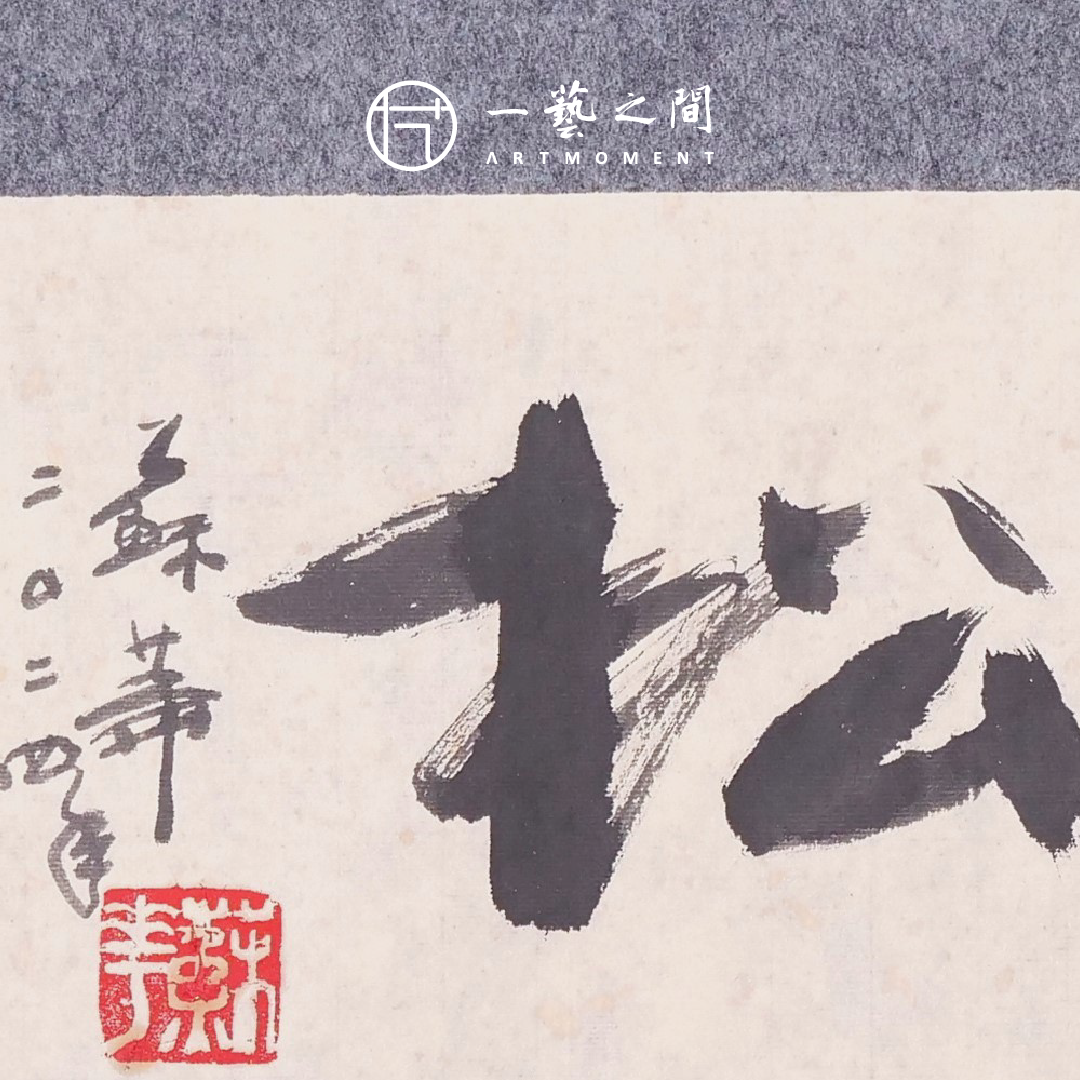 一藝之間
ARTMOMENT
松
蘇華
二〇二四年
蘇華